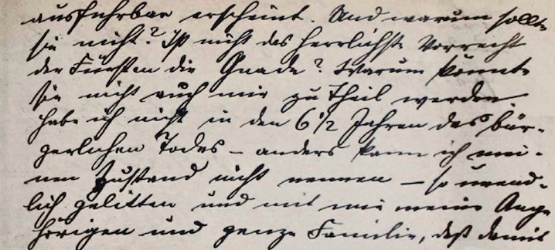 ausführbar erscheint. Und warum sollte
sie nicht? Ist nicht das herrlichste Vorrecht
der Fürsten die Gnade? Warum könnte
sie nicht auch mir zu Theil werden.
Habe ich nicht in den 6 1/2 Jahren des bür-
gerlichen Todes – anders kann ich mei-
nen Zustand nicht nennen – so unend-
lich gelitten und mit mir meine Ange-
hörigen und ganze Familie, daß damit